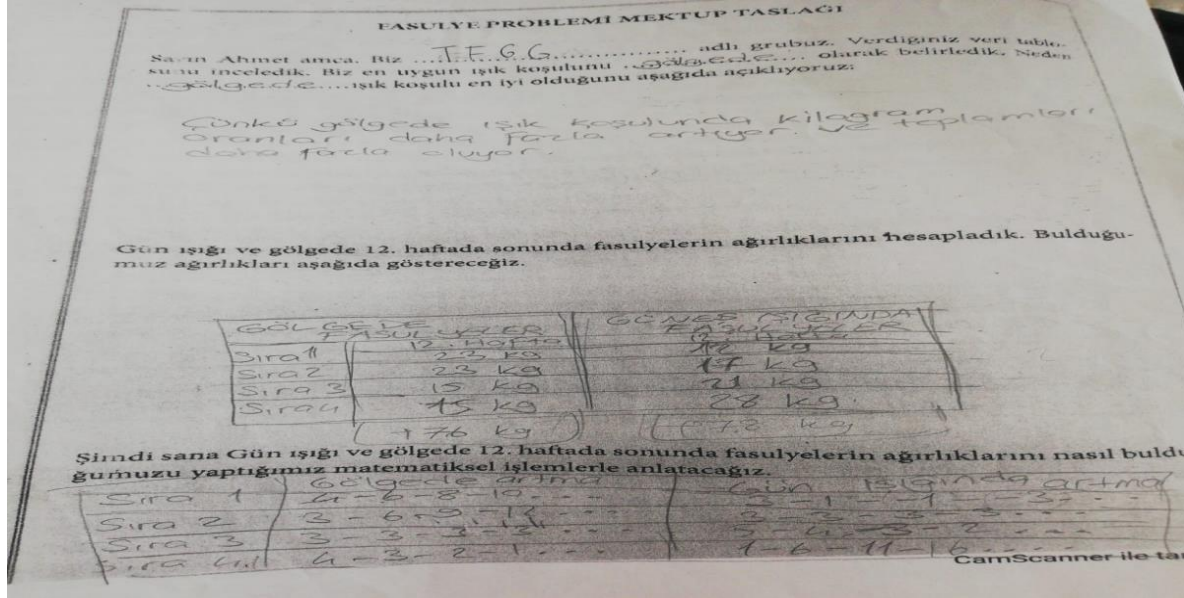 FASULYE PROBLEMİ MEKTUP TASLAĞI
Sayın Ahmet amca. Biz ..... T.F.G.G............... adlı grubuz. Verdiğiniz veri tablo-
sunu inceledik. Biz en uygun ışık koşulunu ..gölgede.... olarak belirledik. Neden
..gölgede....ışık koşulu en iyi olduğunu aşağıda açıklıyoruz:
Çünkü gölgede ışık koşulunda kilagram
oranları daha fazla artıyor. ve toplamları
daha fazla oluyor.
Gün ışığı ve gölgede 12. haftada sonunda fasulyelerin ağırlıklarını hesapladık. Bulduğu-
muz ağırlıkları aşağıda göstereceğiz.
GÖLGEDE FASULYELER GÜNEŞ IŞIĞINDA FASULYELER
12. Hafta 12. Hafta
Sıra 1 23 kg 12 kg
Sıra 2 23 kg 17 kg
Sıra 3 15 kg 21 kg
Sıra 4 15 kg 28 kg
+76 kg 78 kg
Şimdi sana Gün ışığı ve gölgede 12. haftada sonunda fasulyelerin ağırlıklarını nasıl buldu
ğumuzu yaptığımız matematiksel işlemlerle anlatacağız.
Gölgede artma Gün ışığında artma
Sıra 1 4-6-8-10... 3-1-1-3...
Sıra 2 3-6-9-12... 3-3-3-3...
Sıra 3 3-3-3-3... 5-4-3-2...
Sıra 4 4-3-2-1... 1-6-11-16...
CamScanner ile ta